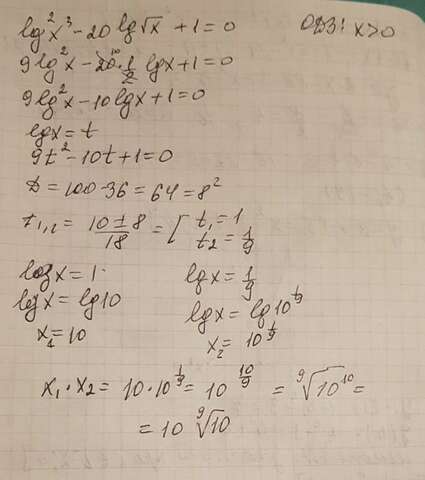 lg²x³ - 20 lg√x + 1 = 0 ОДЗ: x>0
9lg²x - 20·1/2 lgx + 1 = 0
9lg²x - 10lgx + 1 = 0
lgx = t
9t² - 10t + 1 = 0
D = 100-36 = 64 = 8²
t₁,₂ = (10 ± 8)/18 = [ t₁ = 1 t₂ = 1/9
lgx = 1 lgx = 1/9
lgx = lg10 lgx = lg10^(1/9)
x₁ = 10 x₂ = 10^(1/9)
x₁ · x₂ = 10·10^(1/9) = 10^(10/9) = ⁹√10¹⁰ =
= 10 ⁹√10